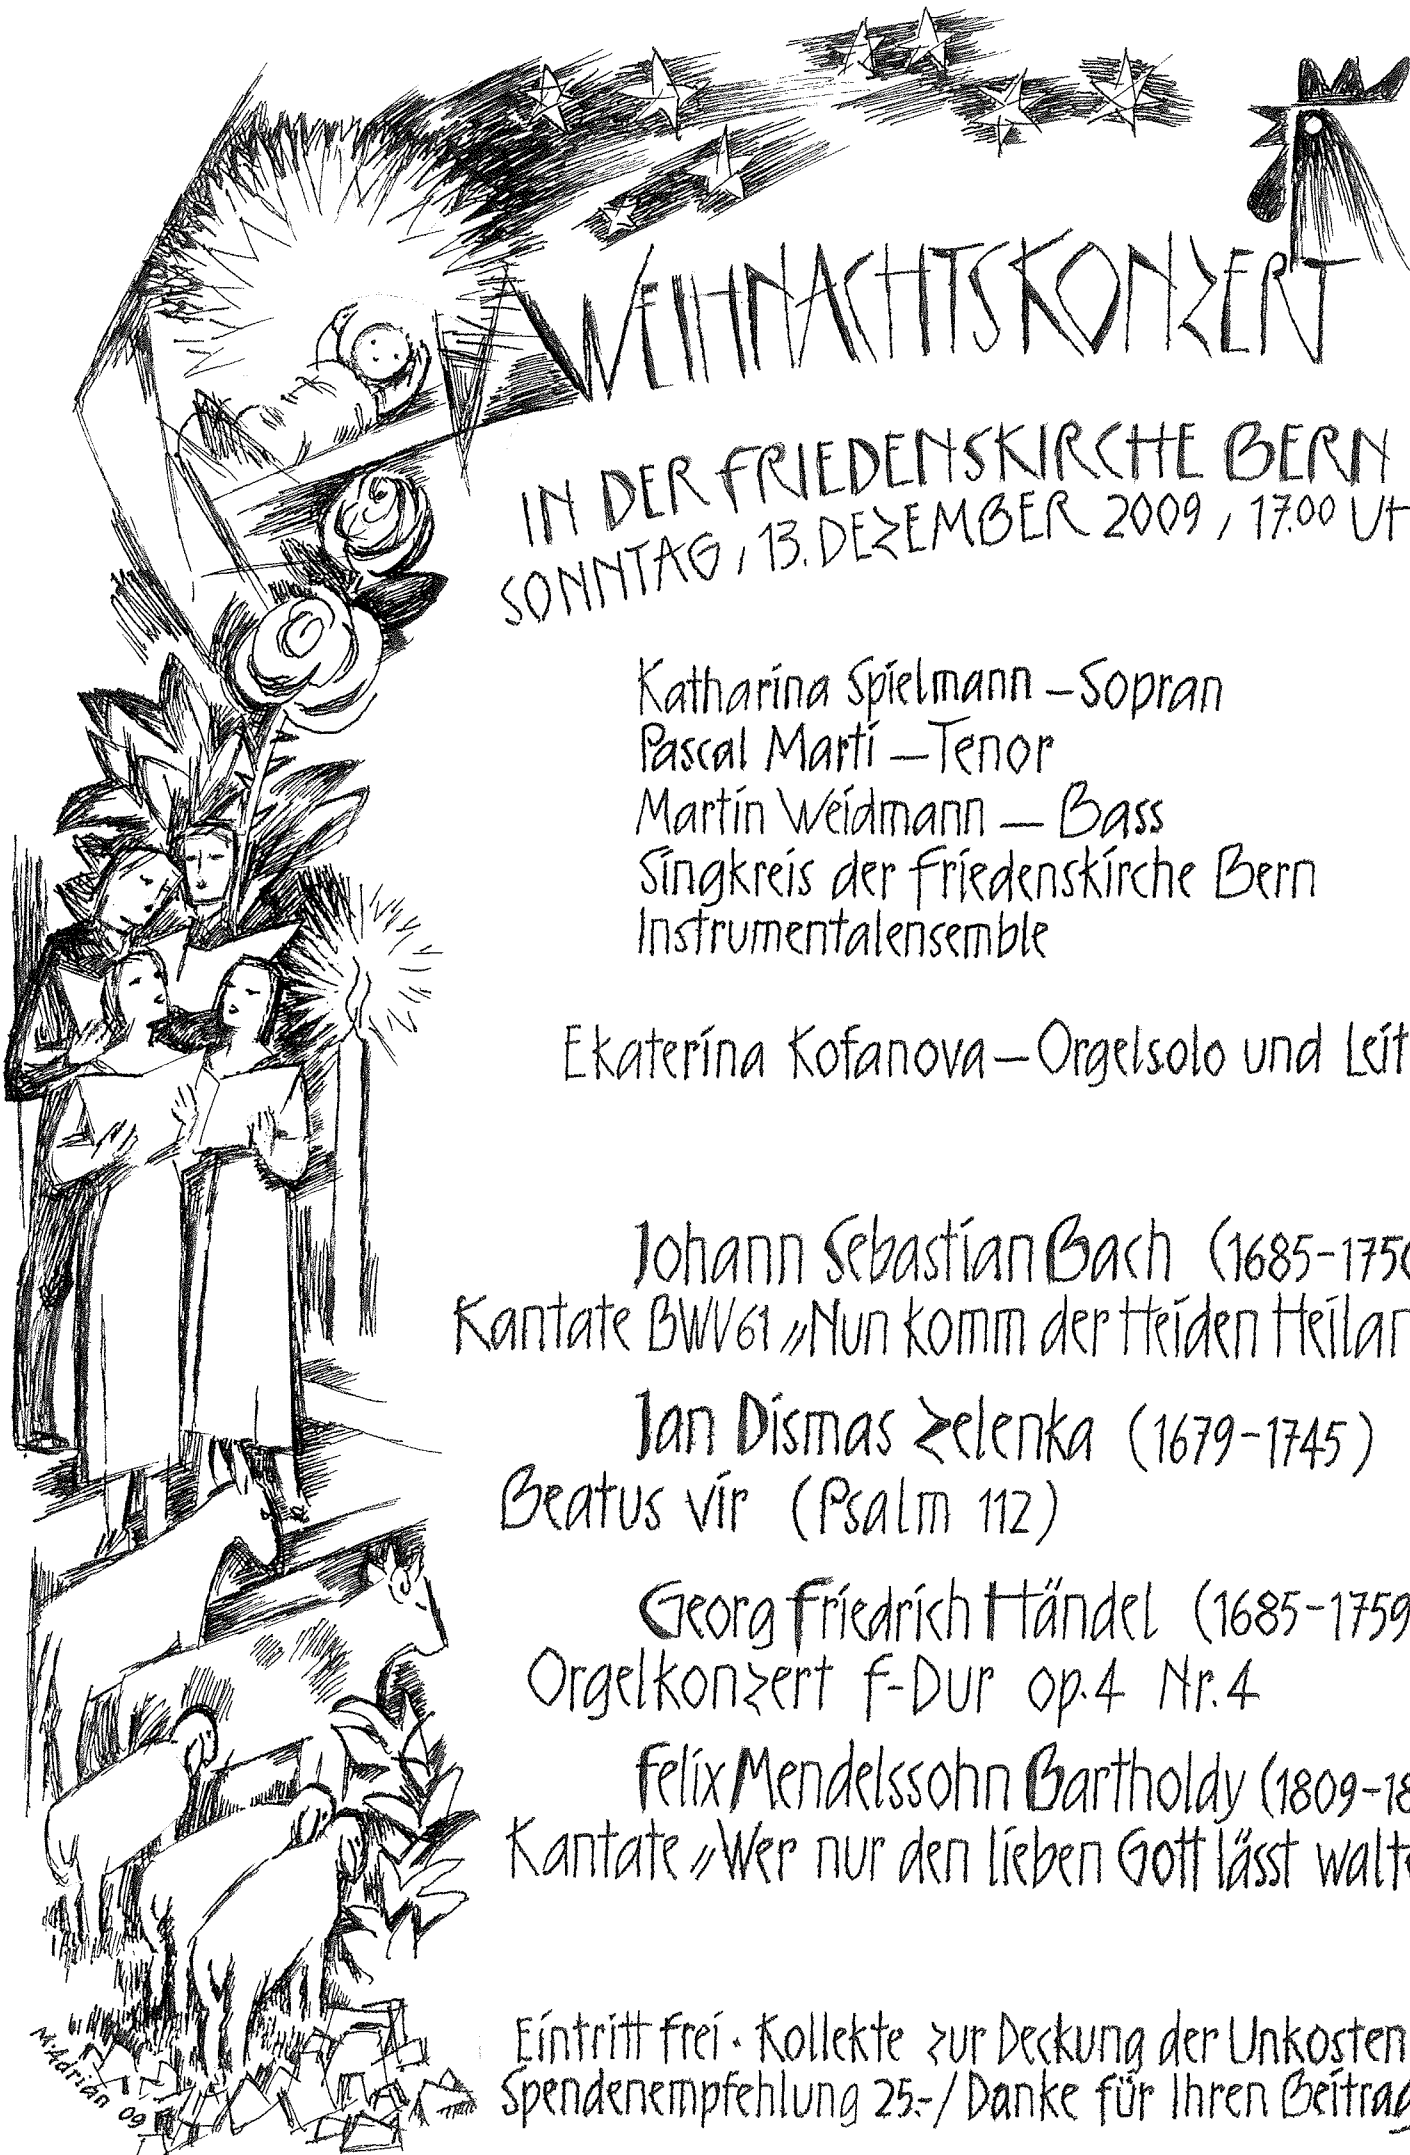 WEIHNACHTSKONZERT
IN DER FRIEDENSKIRCHE BERN
SONNTAG, 13. DEZEMBER 2009, 17.00 UH
Katharina Spielmann – Sopran
Pascal Marti – Tenor
Martin Weidmann – Bass
Singkreis der Friedenskirche Bern
Instrumentalensemble
Ekaterina Kofanova – Orgelsolo und Leit
Johann Sebastian Bach (1685-1750
Kantate BWV 61 „Nun komm der Heiden Heilan
Jan Dismas Zelenka (1679-1745)
Beatus vir (Psalm 112)
Georg Friedrich Händel (1685-1759
Orgelkonzert F-Dur op.4 Nr.4
Felix Mendelssohn Bartholdy (1809-18
Kantate „Wer nur den lieben Gott lässt walte
Eintritt frei · Kollekte zur Deckung der Unkosten
Spendenempfehlung 25.-/ Danke für Ihren Beitrag
M. Adrian 09